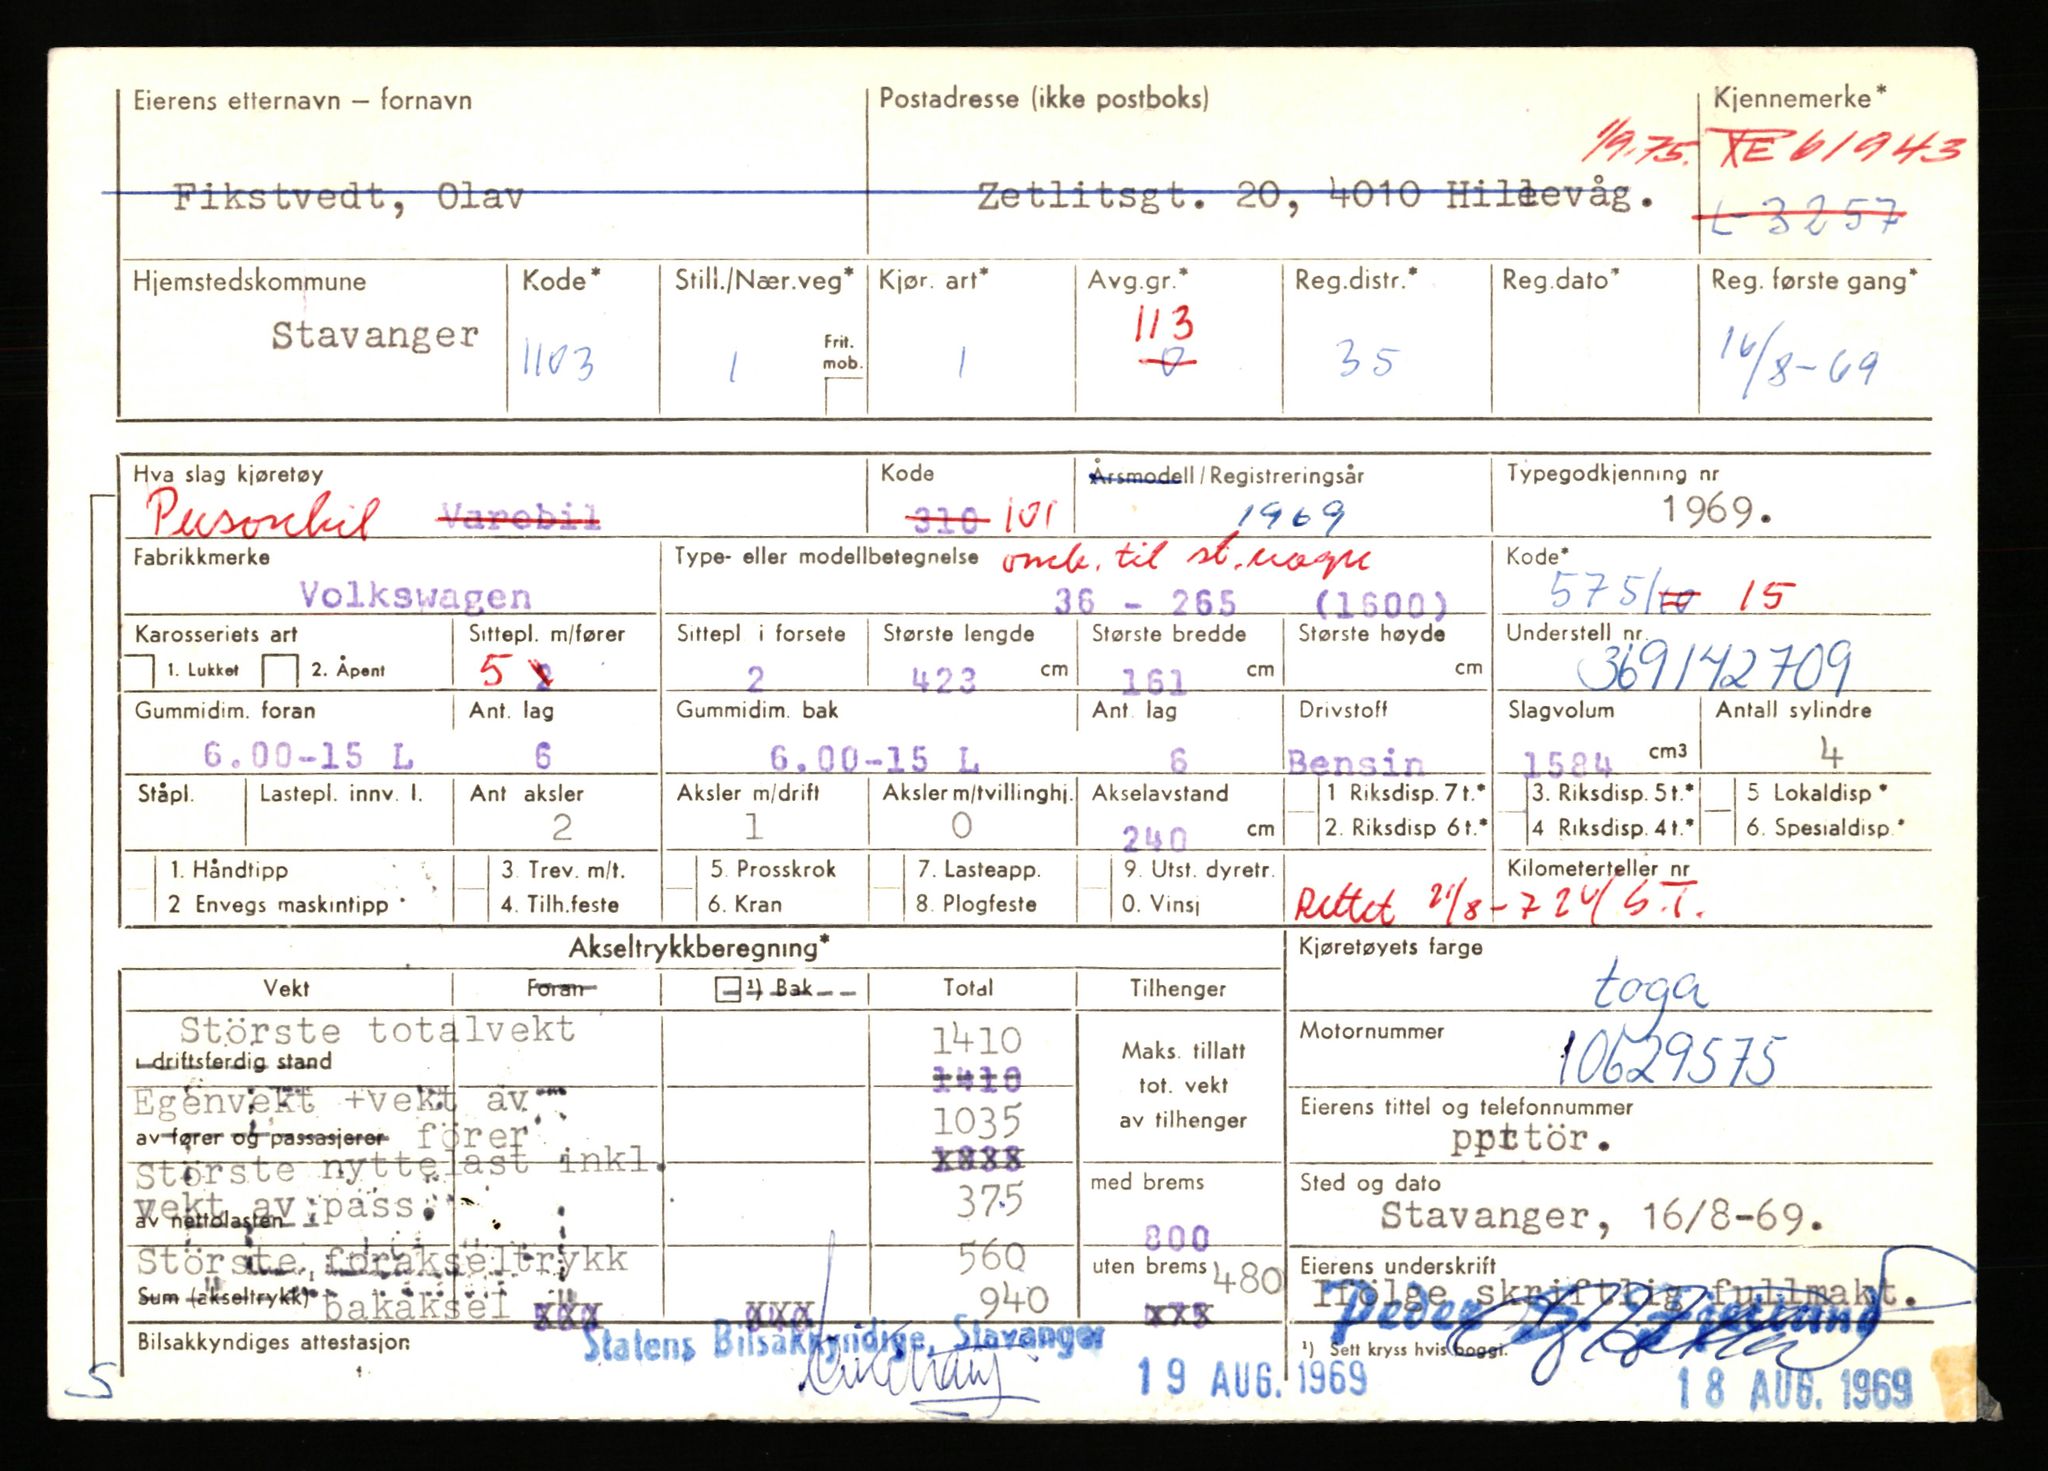 Eierens etternavn – fornavn Postadresse (ikke postboks) Kjennemerke*
1/9.75. 61943
Fikstvedt, Olav Zetlitsgt. 20, 4010 Hillevåg.
L-3257
Hjemstedskommune Kode* Still./Nær.veg* Kjør. art* Avg.gr.* Reg.distr.* Reg.dato* Reg. første gang*
113
Stavanger 1103 1 Frit. mob. 1 0 35 16/8-69
Hva slag kjøretøy Kode Årsmodell/Registreringsår Typegodkjenning nr
Personbil Varebil 310 101 1969 1969.
Fabrikkmerke Type- eller modellbetegnelse omb. til st.vogn Kode*
Volkswagen 36 - 265 (1600) 575/10 15
Karosseriets art Sittepl. m/fører Sittepl i forsete Største lengde Største bredde Største høyde Understell nr.
1. Lukket 2. Åpent 5 2 2 423 cm 161 cm cm 369142709
Gummidim. foran Ant. lag Gummidim. bak Ant. lag Drivstoff Slagvolum Antall sylindre
6.00-15 L 6 6.00-15 L 6 Bensin 1584 cm3 4
Ståpl. Lastepl. innv. l. Ant aksler Aksler m/drift Aksler m/tvillinghj. Akselavstand 1 Riksdisp. 7 t.* 3. Riksdisp. 5 t.* 5 Lokaldisp*
2 1 0 240 cm 2. Riksdisp 6 t.* 4 Riksdisp. 4 t.* 6. Spesialdisp.*
1. Håndtipp 3. Trev. m/t. 5. Prosskrok 7. Lasteapp. 9. Utst. dyretr. Kilometerteller nr
2 Envegs maskintipp 4. Tilh.feste 6. Kran 8. Plogfeste 0. Vinsj Rettet 21/8-72 S.T.
Akseltrykkberegning* Kjøretøyets farge
Vekt Foran ¹) Bak Total Tilhenger toga
Störste totalvekt 1410 Motornummer
i driftsferdig stand 1410 Maks. tillatt tot. vekt av tilhenger 10629575
Egenvekt +vekt av 1035 Eierens tittel og telefonnummer
av fører og passasjerer förer
Störste nyttelast inkl. med brems Sted og dato
vekt av pass. 375 Stavanger, 16/8-69.
av nettolasten 800
Störste forakseltrykk 560 uten brems 480 Eierens underskrift
Sum (akseltrykk) bakaksel 940 Ifölge skriftlig fullmakt.
Bilsakkyndiges attestasjon Statens Bilsakkyndige, Stavanger ¹) Sett kryss hvis boggi.
19 AUG. 1969 18 AUG. 1969
S